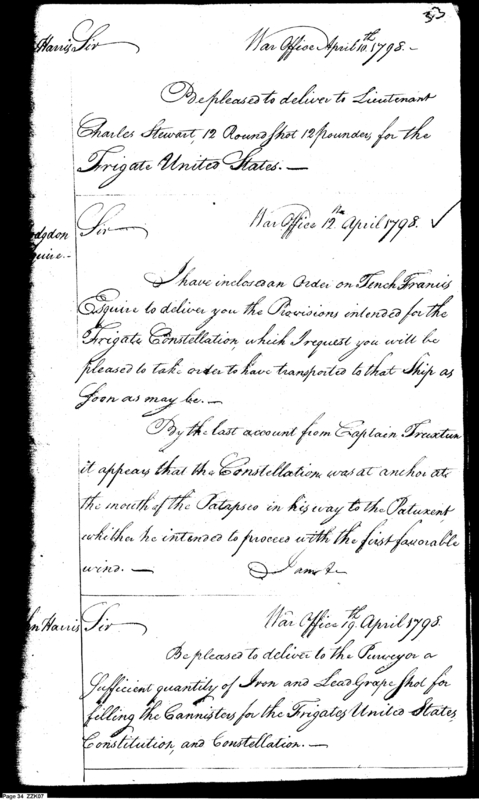 33
Harris Sir War Office April 10th 1798.—
Be pleased to deliver to Lieutenant
Charles Stewart, 12 Round Shot 12 pounders, for the
Frigate United States.—
Sir War Office 12th April 1798.
I have inclosed an Order on Tench Francis
Esquire to deliver you the Provisions intended for the
Frigate Constellation, which I request you will be
pleased to take order to have transported to that Ship as
soon as may be.—
By the last account from Captain Truxtun
it appears that the Constellation was at anchor at
the mouth of the Patapsco in his way to the Patuxent
whither he intended to proceed with the first favorable
wind.— I am &
Harris Sir War Office 19th April 1798.
Be pleased to deliver to the Purveyor a
sufficient quantity of Iron and Lead Grape Shot for
filling the Cannisters for the Frigates United States,
Constitution, and Constellation.—
Page 34 ZZK07